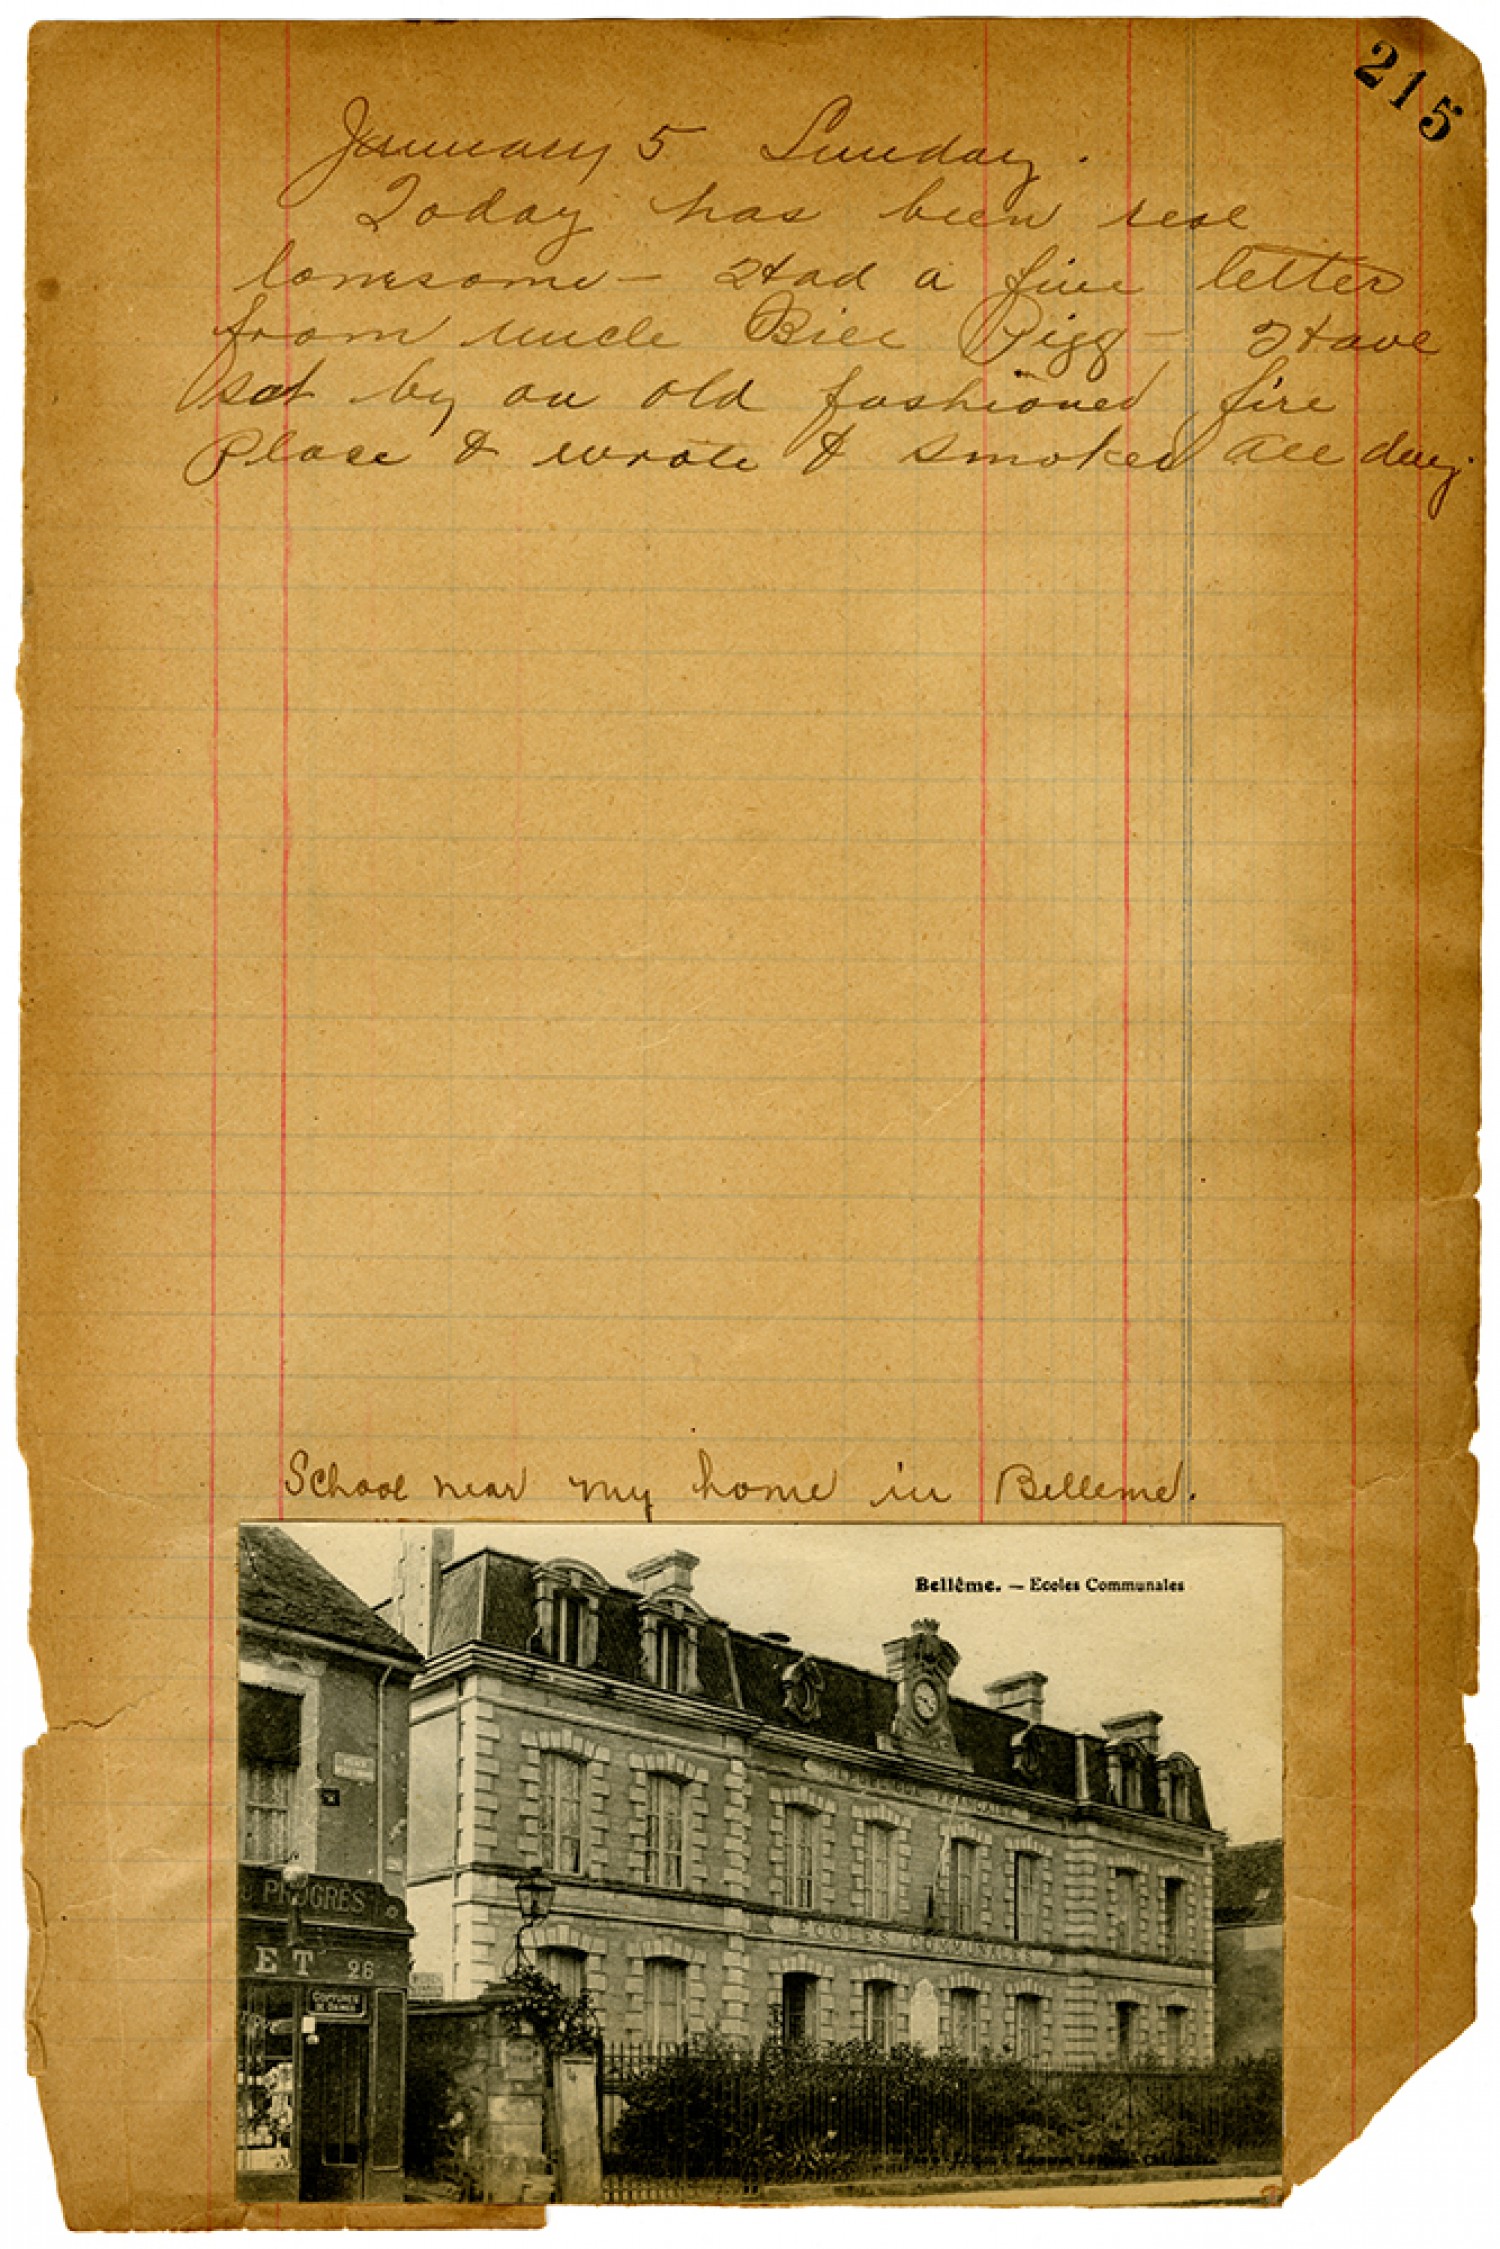 215
January 5 Sunday.
Today has been real
lonesome – Had a fine letter
from uncle Bill Pigg – Have
sat by an old fashioned fire
place & wrote & smoked all day.
School near my home in Belleme.
Bellême. — Ecoles Communales
REPUBLIQUE FRANÇAISE
PROGRÈS
ECOLES COMMUNALES
ET 26
COIFFURES
DE DAMES